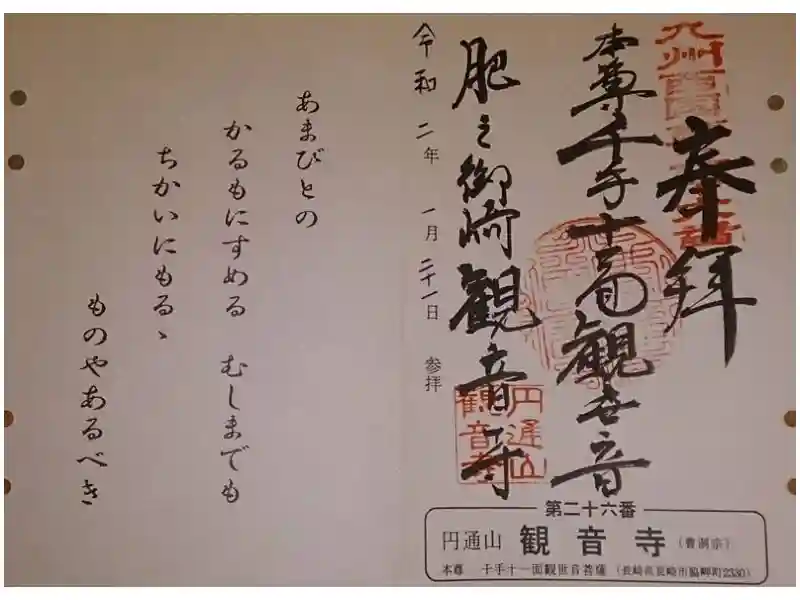 九州西国
奉拝
本尊千手十一面観世音
肥之御崎観音寺
円通山
観音寺
令和二年一月二十一日 参拝
第二十六番
円通山 観音寺 (曹洞宗)
本尊 千手十一面観世音菩薩 (長崎県長崎市脇岬町2330)
あまびとの
かるもにすめる むしまでも
ちかいにもるゝ
ものやあるべき